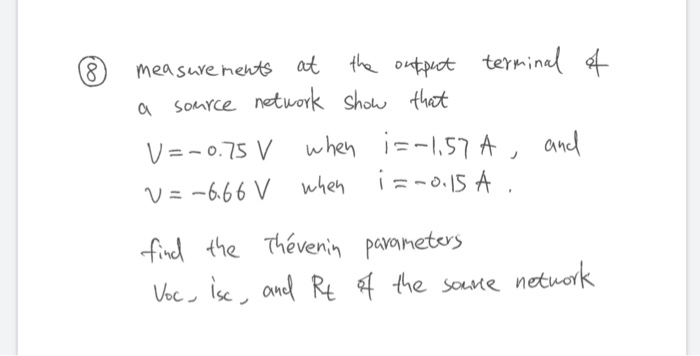 ⑧ measurements at the output terminal of
a source network show that
V = -0.75 V when i = -1.57 A, and
v = -6.66 V when i = -0.15 A.
find the Thévenin parameters
Voc, isc, and Rt of the source network